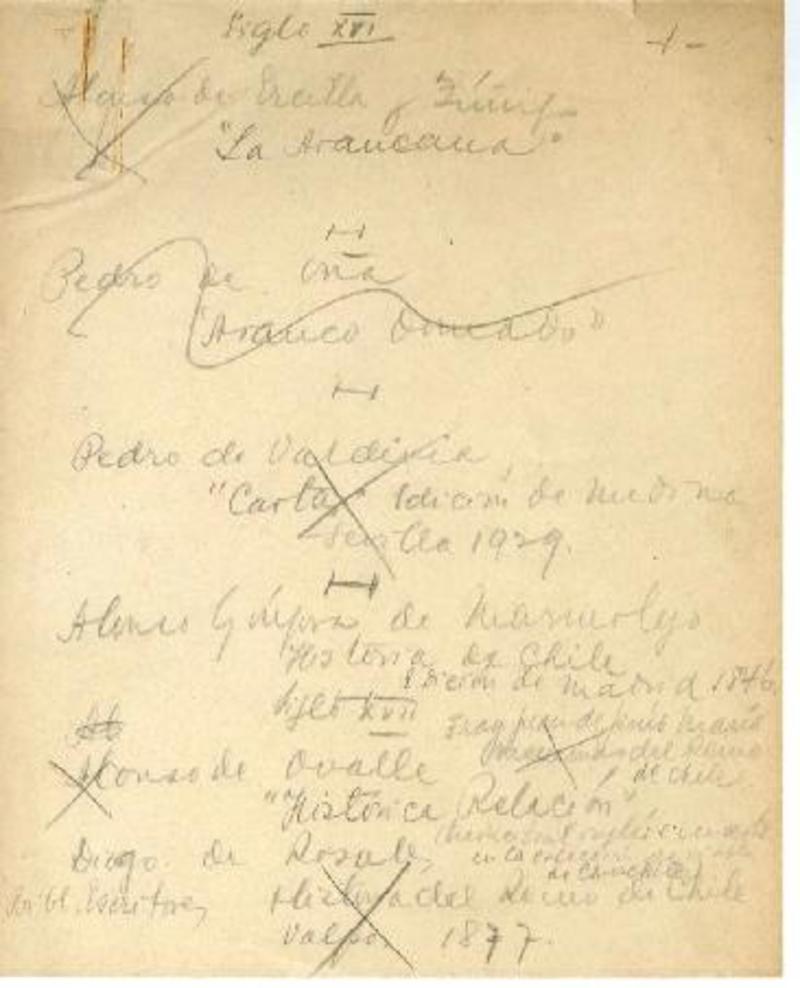 Siglo XVI
Alonso de Ercilla y Zúñiga
"La Araucana"
Pedro de Oña
"Arauco Domado"
Pedro de Valdivia
"Cartas" Edición de Medina
Sevilla 1929.
Alonso Góngora de Marmolejo
Historia de Chile
Edición de Madrid 1846
Siglo XVII
Fray Juan de Jesús María
del Reino
de Chile
Alonso de Ovalle
"Histórica Relación"
Diego de Rosales
Historia del Reino de Chile
Valpo. 1877.
Escritores